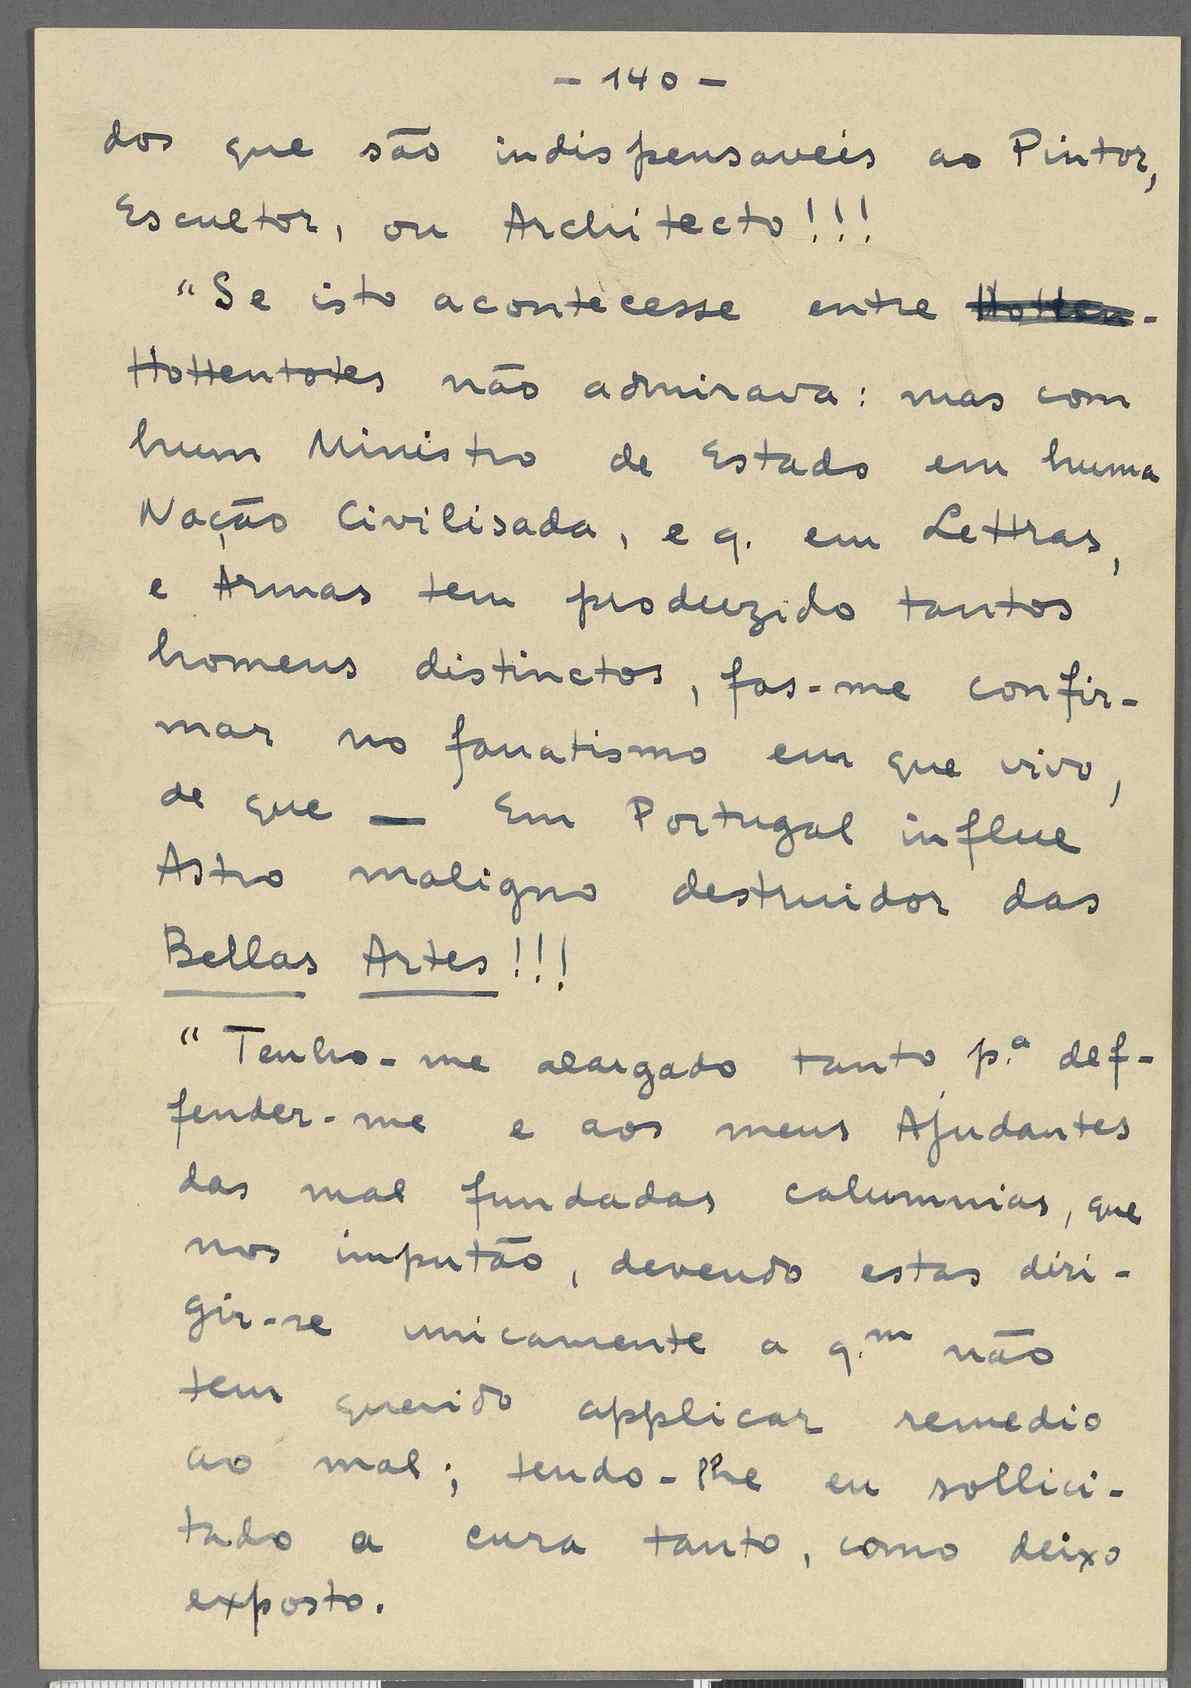 - 140 -
dos que são indispensaveis ao Pintor,
Escultor, ou Architecto!!!
"Se isto acontecesse entre Hotten-
Hottentotes não admirava: mas com
hum Ministro de Estado em huma
Nação Civilisada, e q. em Lettras,
e Armas tem produzido tantos
homens distinctos, fas-me confir-
mar no fanatismo em que vivo,
de que — Em Portugal influe
Astro maligno destruidor das
Bellas Artes!!!
"Tenho-me alargado tanto p.ª def-
fender-me e aos meus Ajudantes
das mal fundadas calumnias, que
nos imputão, devendo estas diri-
gir-se unicamente a q.m não
tem querido applicar remedio
ao mal; tendo-lhe eu sollici-
tado a cura tanto, como deixo
exposto.